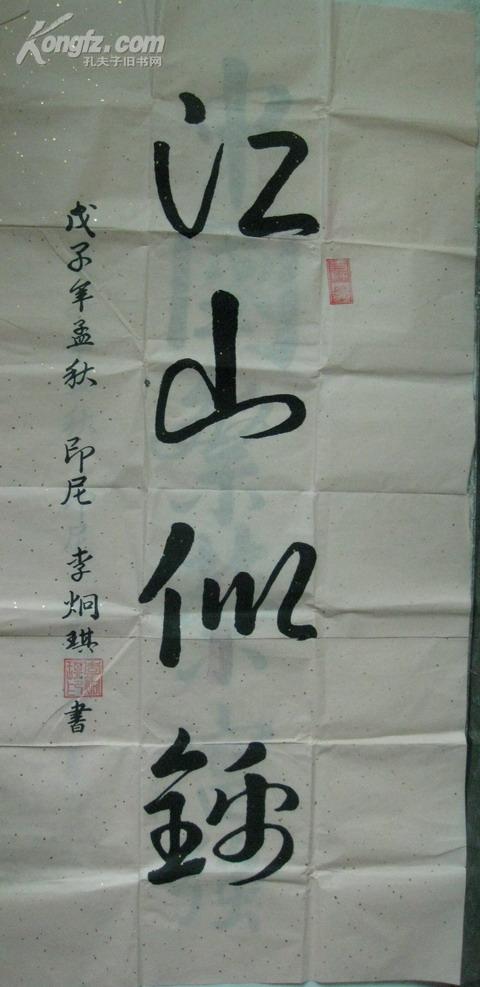 Kongfz.com
孔夫子旧书网
江山似錦
戊子年孟秋 印尼 李炯琪 書